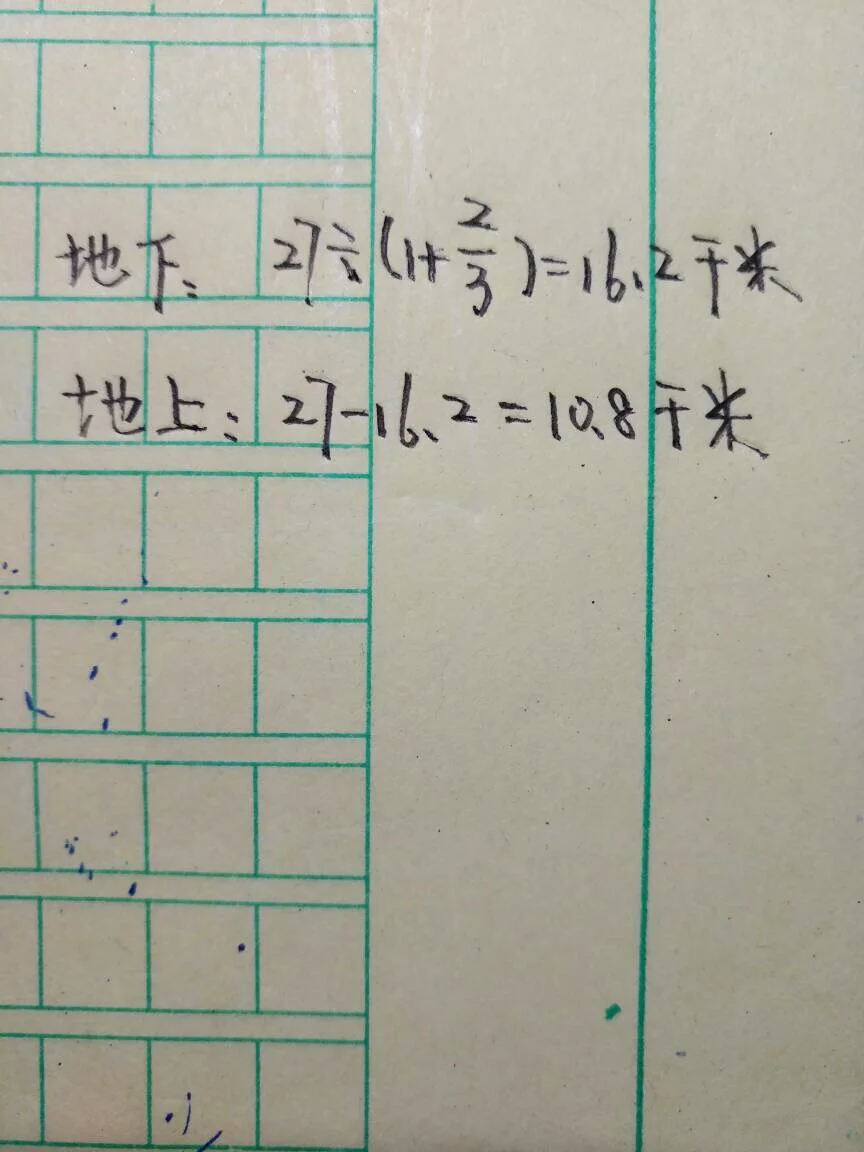 地下：27÷(1+2/3)=16.2千米
地上：27-16.2=10.8千米